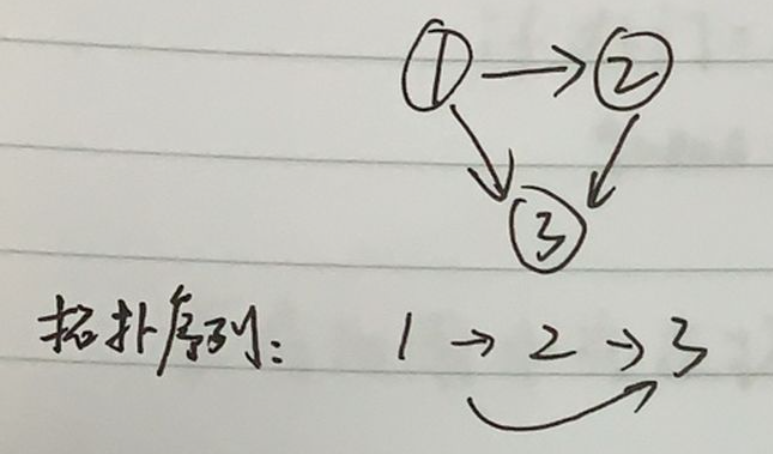 ① → ②
③
拓扑序列: 1 → 2 → 3